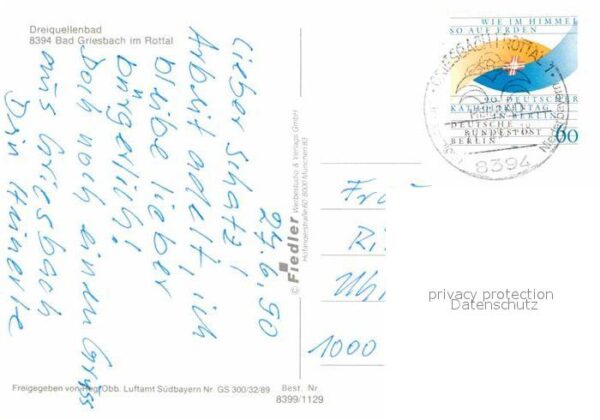 Dreiquellenbad
8394 Bad Griesbach im Rottal
24.6.90
Lieber Schatz!
Arbeit adelt, ich
bleibe lieber
bürgerlich!
Doch noch einen Gruß
aus Griesbach
Dein Heinerle
© Fiedler Werbestudio & Verlags GmbH
Hofangerstraße 60 8000 München 83
WIE IM HIMMEL
SO AUF ERDEN
90. DEUTSCHER
KATHOLIKENTAG
IN BERLIN
DEUTSCHE
BUNDESPOST
BERLIN
60
8394
Fr
Ri
Uh
1000
privacy protection
Datenschutz
Freigegeben von Reg/Obb. Luftamt Südbayern Nr. GS 300/32/89
Best. Nr
8399/1129